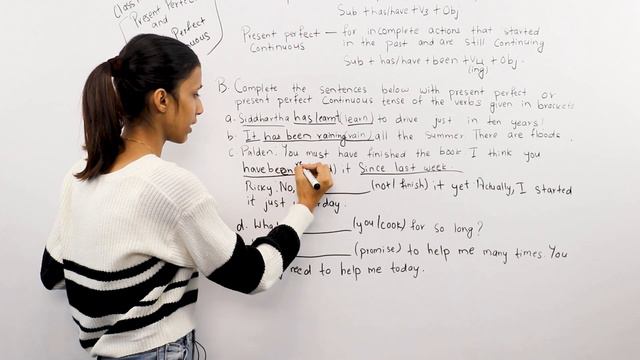 Class:
Present Perfect
and
Perfect
Continuous
Sub + has/have + V3 + Obj
Present perfect — for incomplete actions that started
Continuous in the past and are still continuing
Sub + has/have + been + V4 + Obj.
(ing)
B. Complete the sentences below with present perfect or
present perfect continuous tense of the verbs given in brackets
a. Siddhartha has learnt (learn) to drive just in ten years!
b. It has been raining (rain) all the summer. There are floods.
c. Palden: You must have finished the book I think you
have been it since last week.
Ricky: No, (not/finish) it yet Actually, I started
it just
d. (you/cook) for so long?
(promise) to help me many times. You
need to help me today.